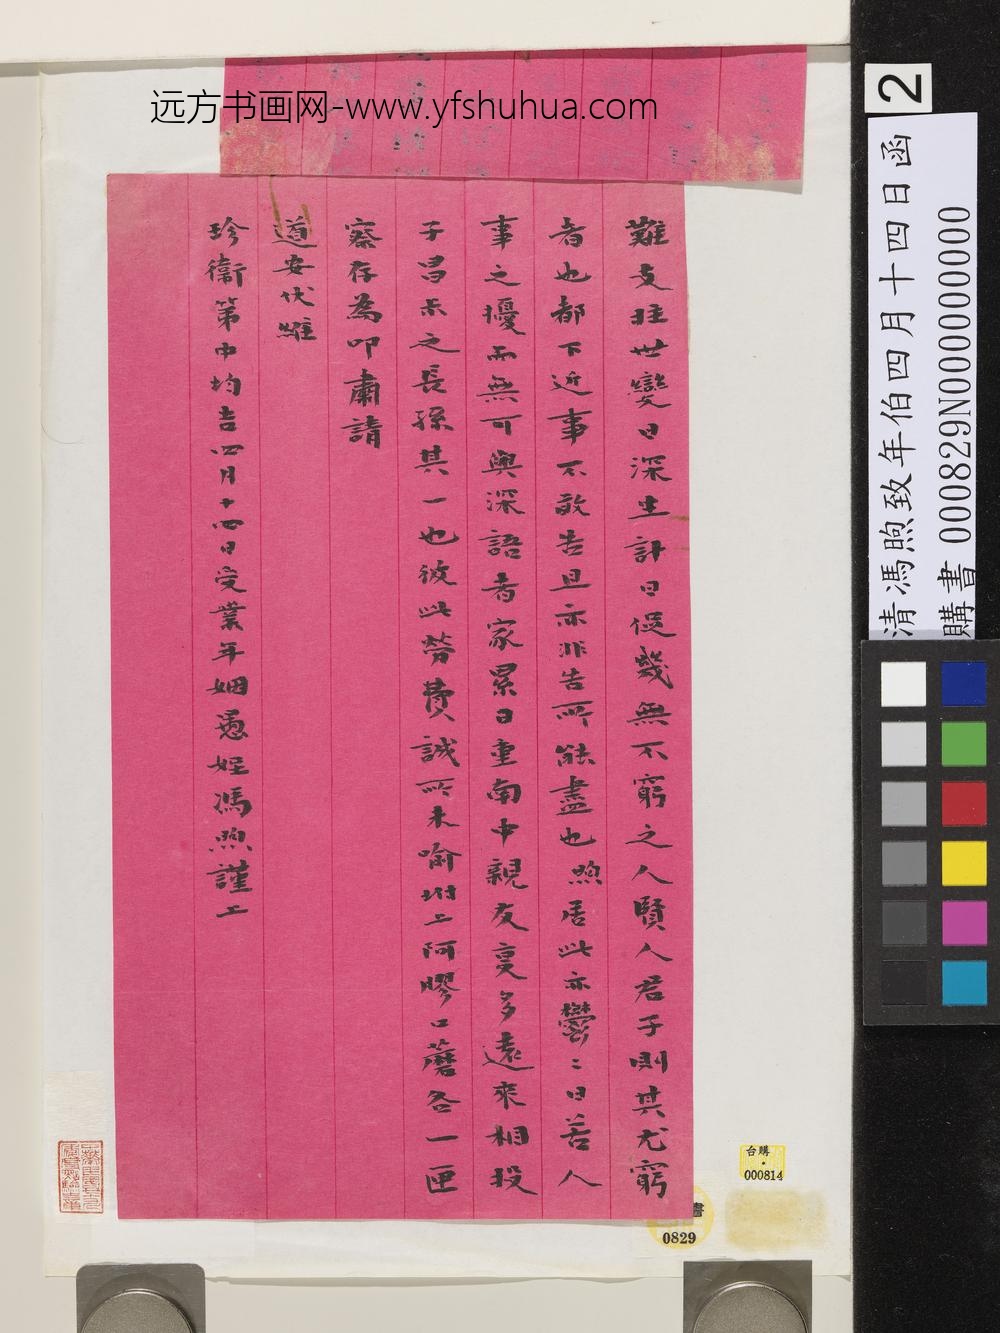 远方书画网-www.yfshuhua.com
難支拄世變日深生計日促幾無不窮之人賢人君子則其尤窮
者也都下近事不敢告且亦非告所能盡也煦居此亦鬱〻日苦人
事之擾而無可與深語者家累日重南中親友更多遠來相投
子昌尗之長孫其一也彼此勞費誠所未喻坿上阿膠口蘑各一匣
察存為叩肅請
道安伏雖
珍衛第中均吉四月十四日受業年姻愚姪馮煦謹上
2
清馮煦致年伯四月十四日函
購書 000829N000000000
台購
000814
書
0829